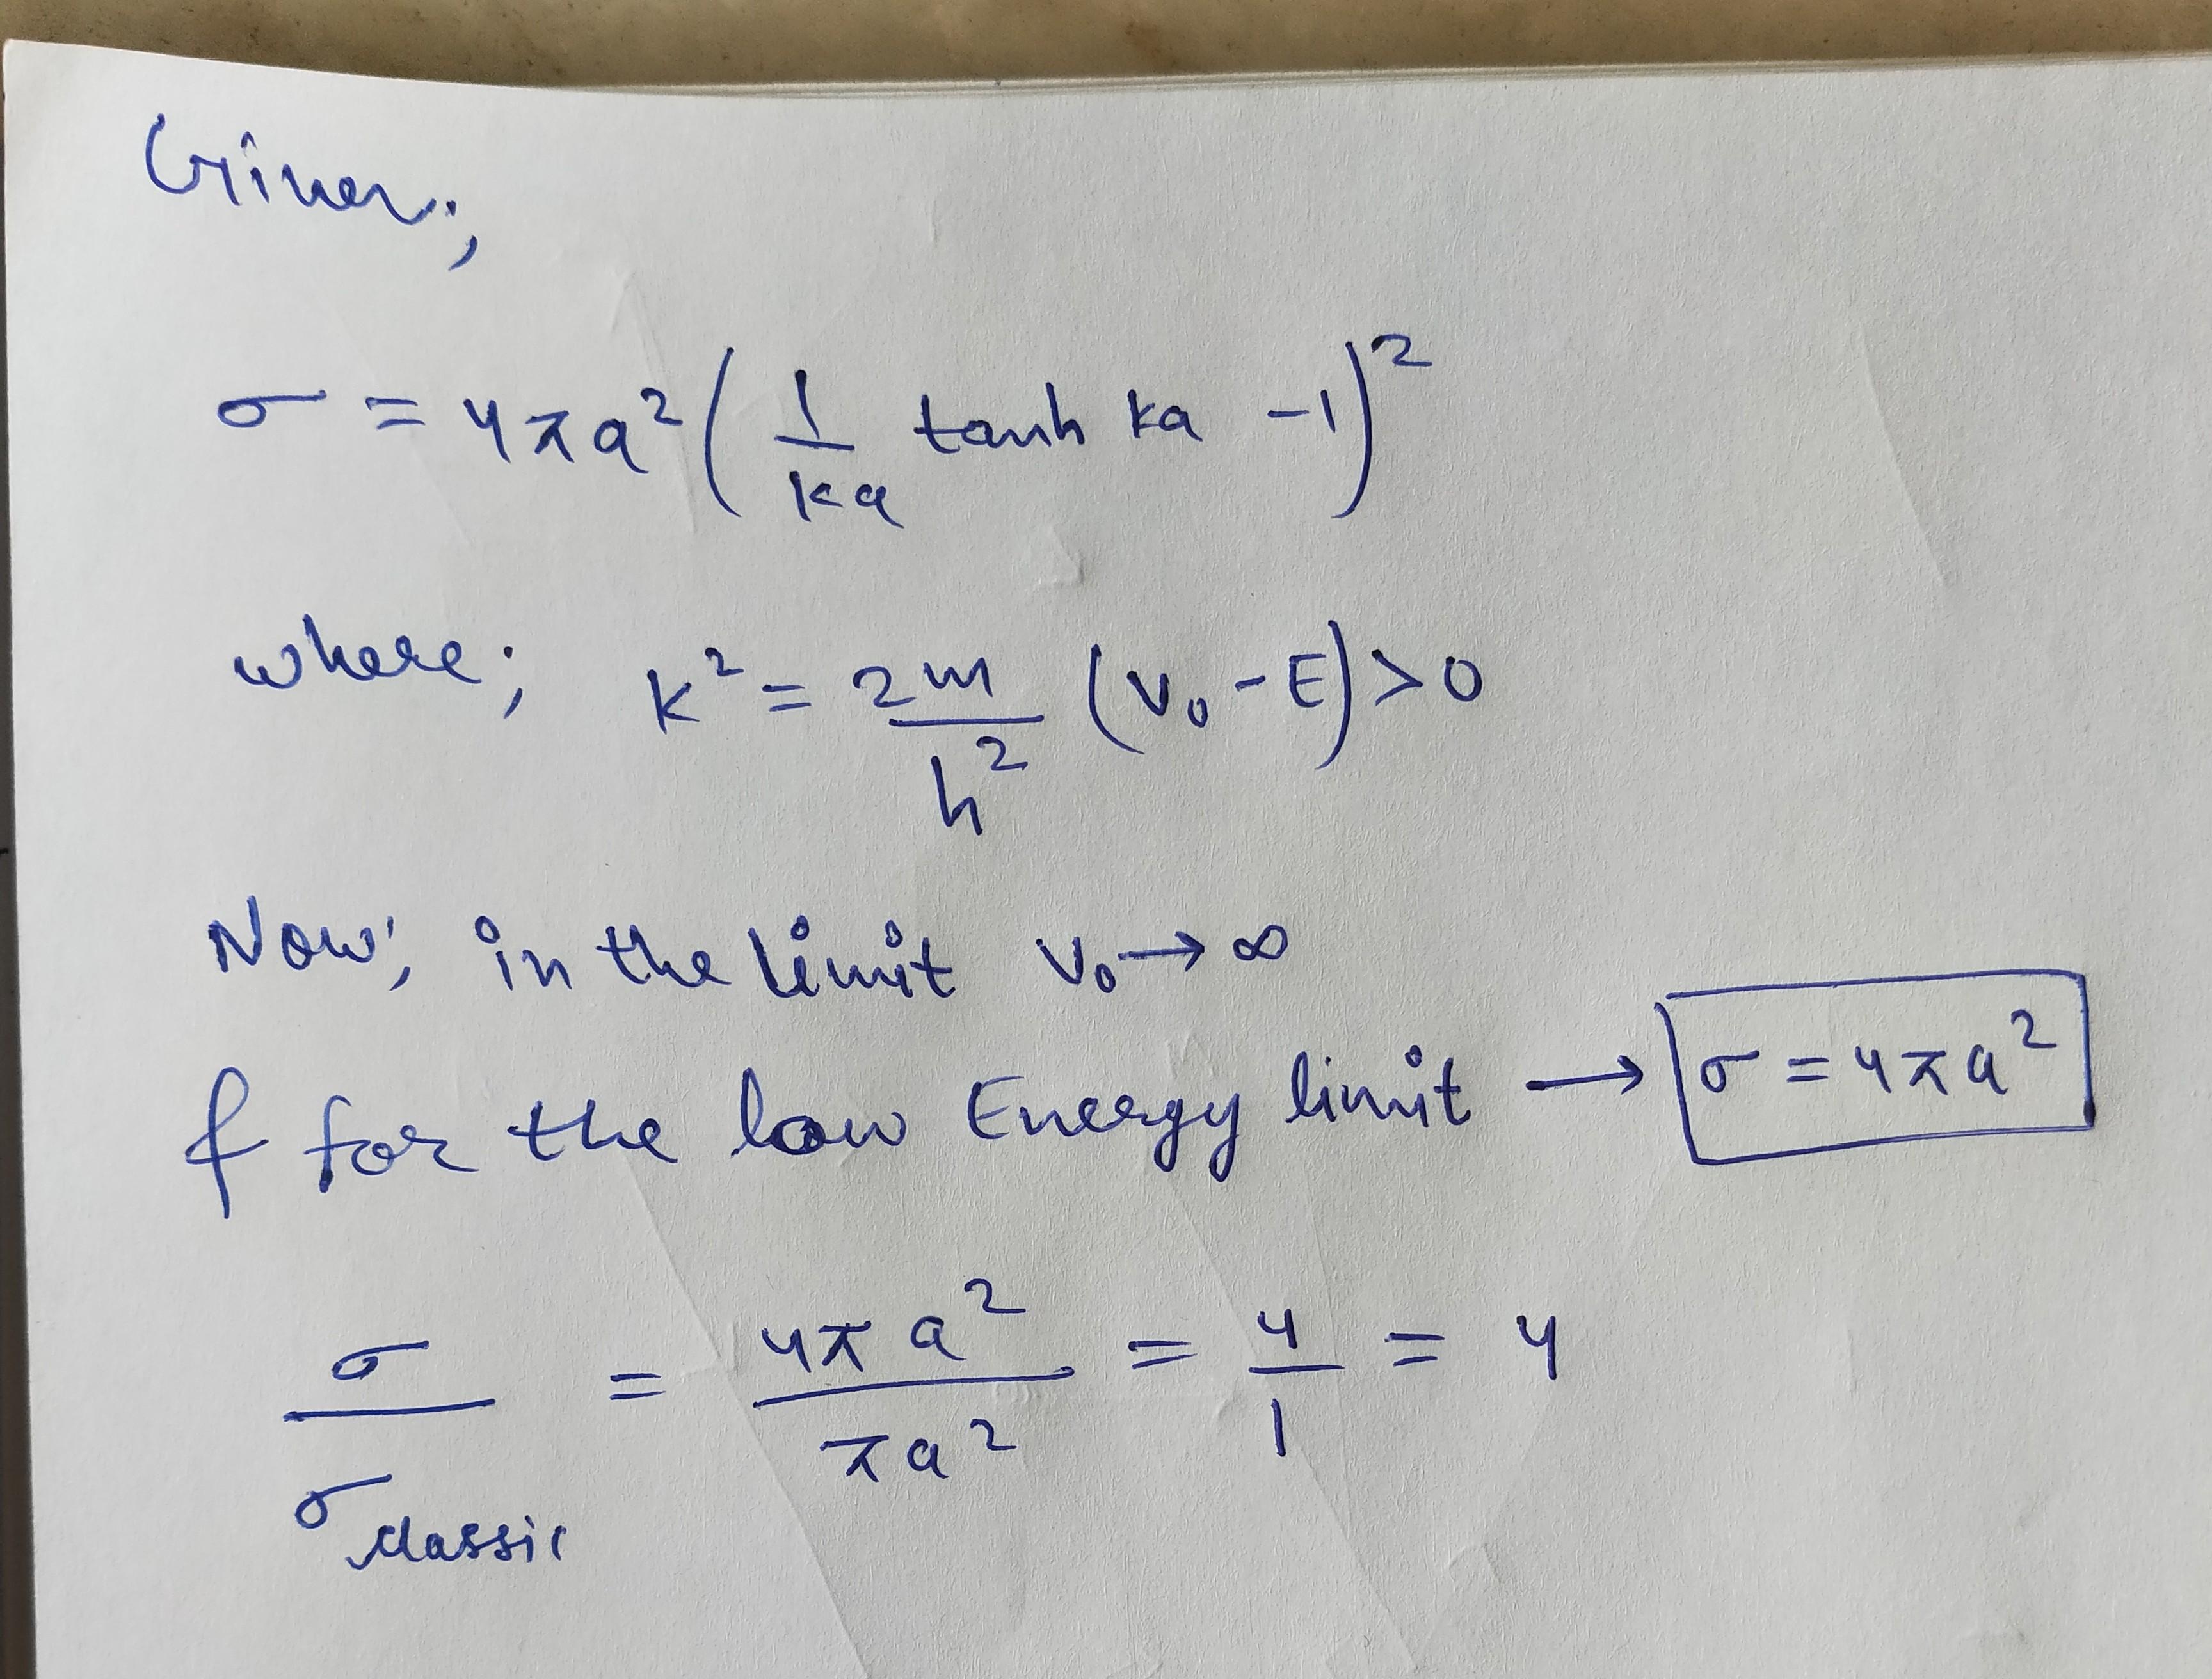 Given;
σ = 4πa² (1/ka tanh ka -1)²
where; k² = 2m/ħ² (V₀ - E) > 0
Now; in the limit V₀ → ∞
& for the low Energy limit → σ = 4πa²
σ/σclassic = 4πa²/πa² = 4/1 = 4